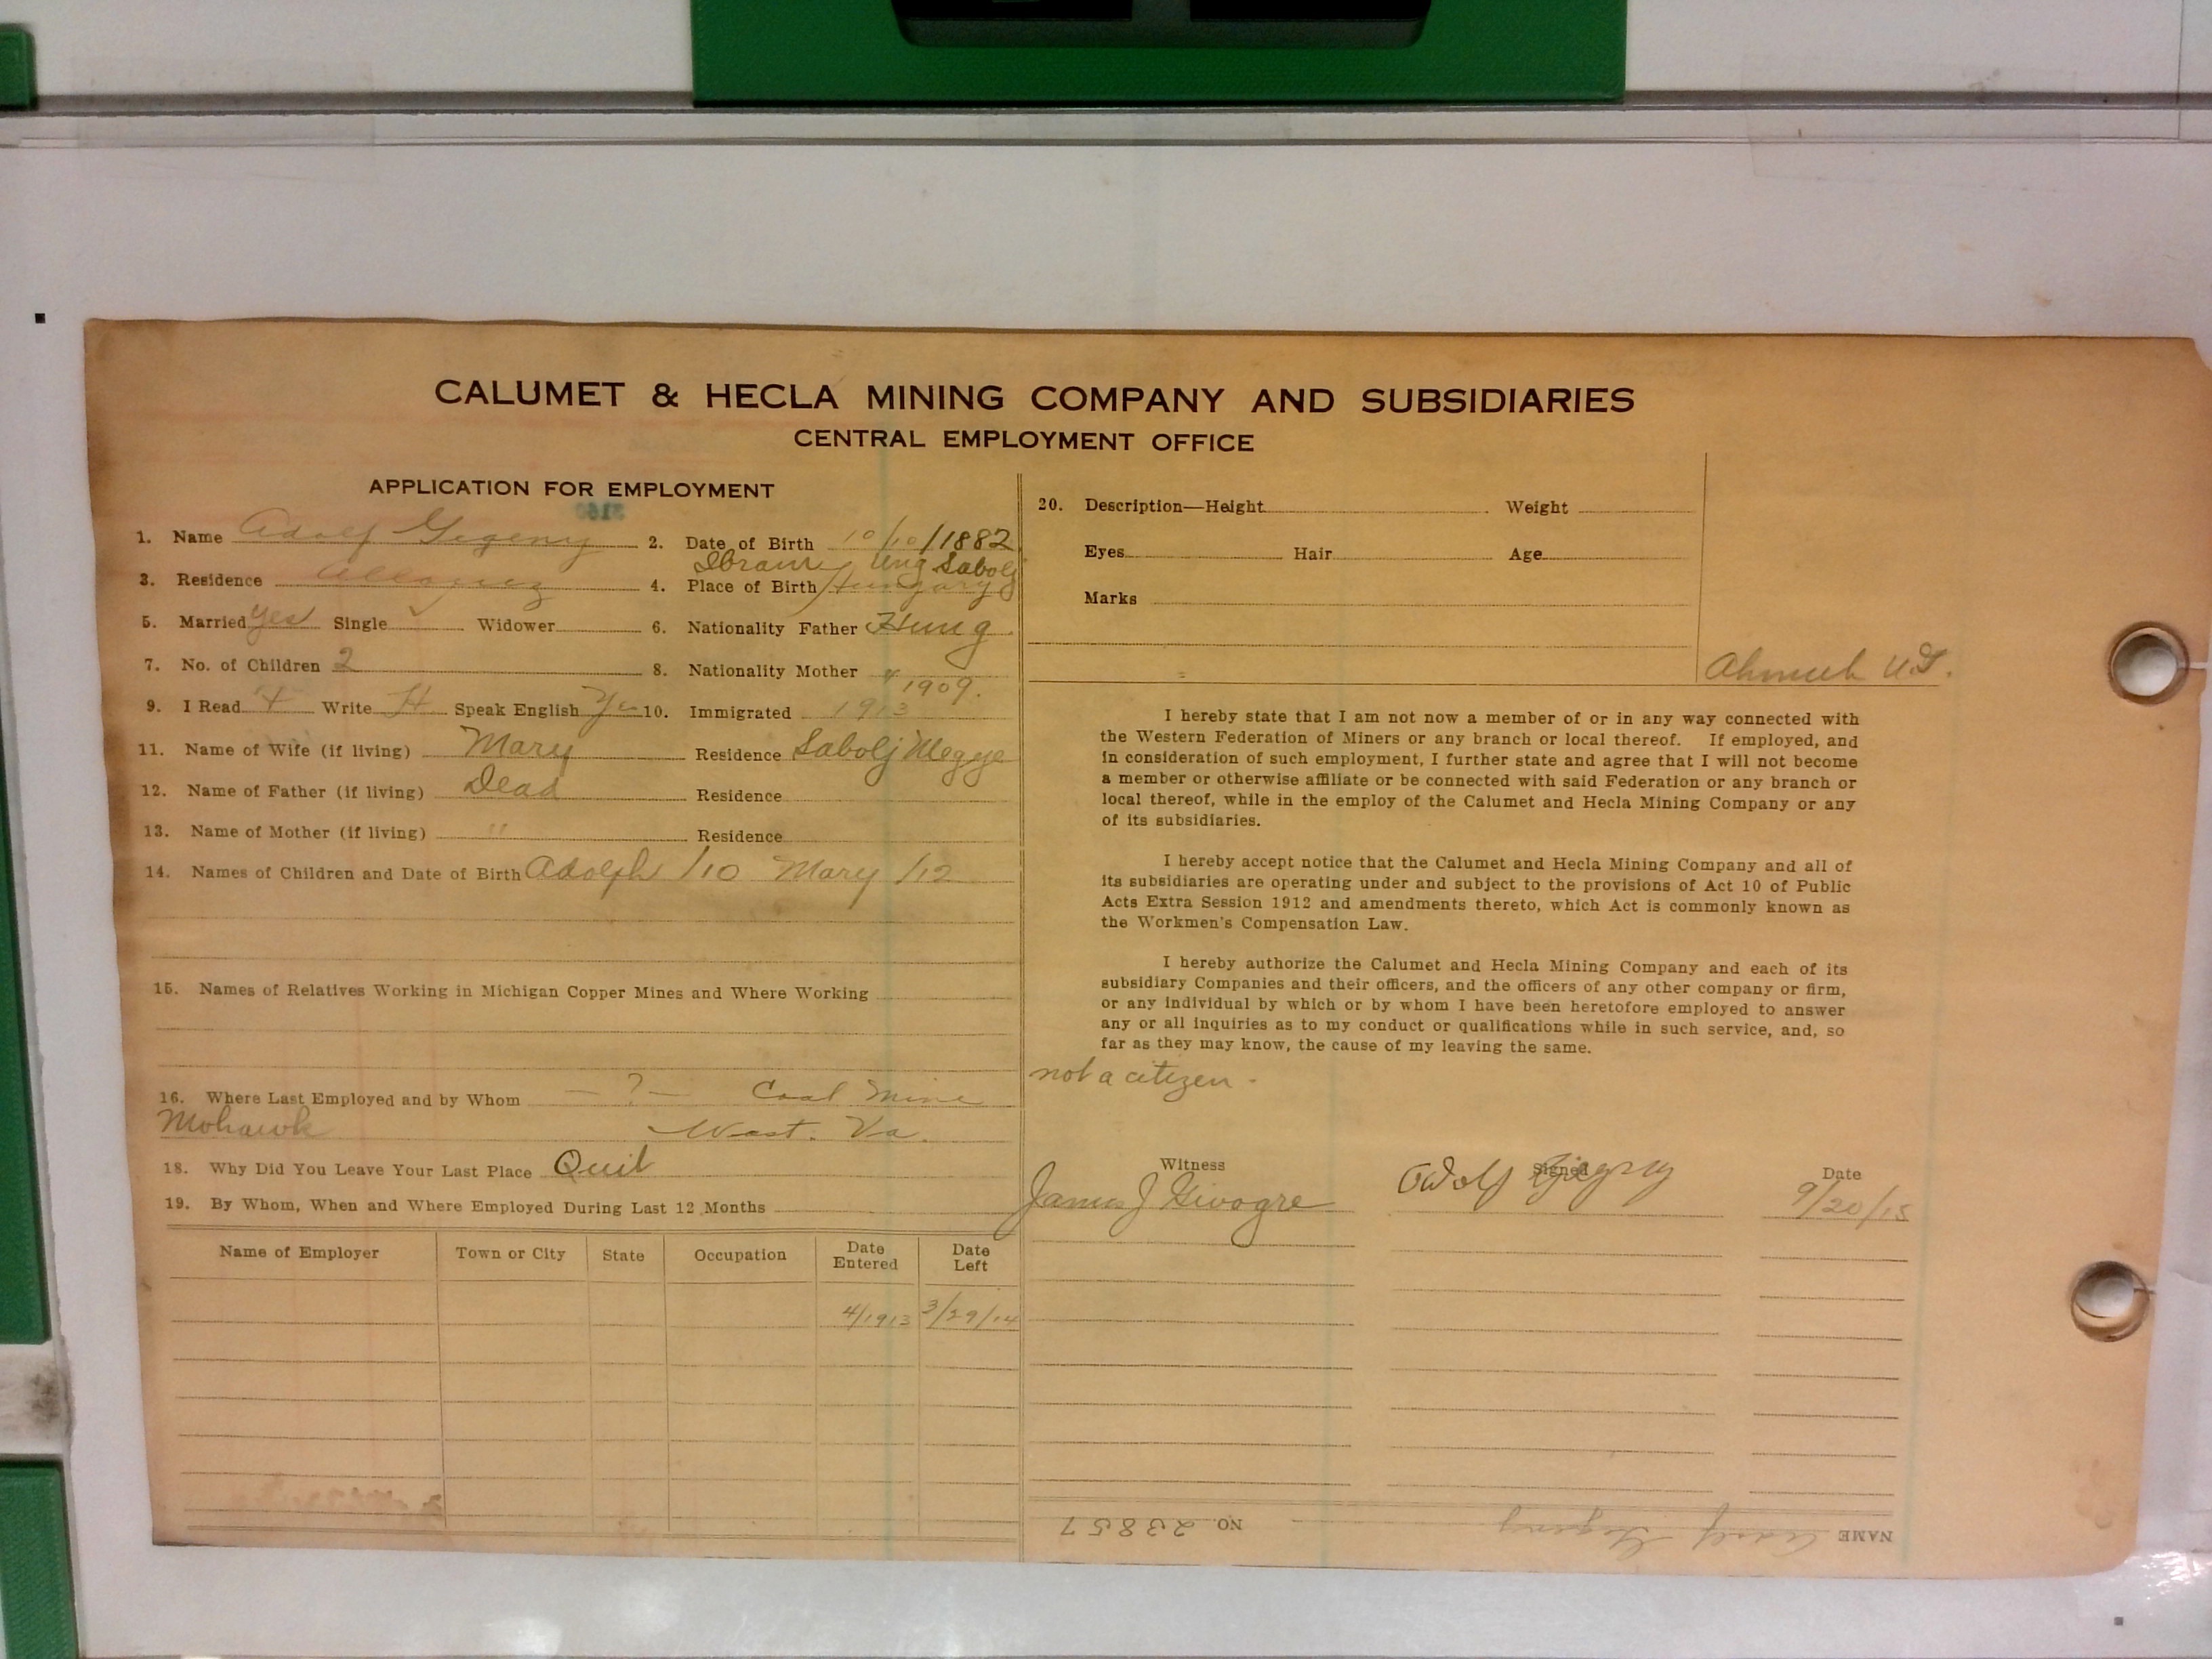 CALUMET & HECLA MINING COMPANY AND SUBSIDIARIES
CENTRAL EMPLOYMENT OFFICE
APPLICATION FOR EMPLOYMENT
1. Name Adolf Gegeny 2. Date of Birth 10/10/1882
Ibrany Ung Sabolj
3. Residence Allouez 4. Place of Birth Hungary
5. Married yes Single ✓ Widower 6. Nationality Father Hung
7. No. of Children 2 8. Nationality Mother "
1909.
9. I Read Write H Speak English Ye 10. Immigrated 1913
11. Name of Wife (if living) Mary Residence Sabolj Megye
12. Name of Father (if living) Dead Residence
13. Name of Mother (if living) " Residence
14. Names of Children and Date of Birth Adolph /10 Mary /12
15. Names of Relatives Working in Michigan Copper Mines and Where Working
16. Where Last Employed and by Whom — ? — Coal Mine
Mohawk West. Va.
18. Why Did You Leave Your Last Place Quit
19. By Whom, When and Where Employed During Last 12 Months
Name of Employer Town or City State Occupation Date Entered Date Left
4/1913 3/29/14
20. Description—Height Weight
Eyes Hair Age
Marks
Ahmeek U.G.
I hereby state that I am not now a member of or in any way connected with
the Western Federation of Miners or any branch or local thereof. If employed, and
in consideration of such employment, I further state and agree that I will not become
a member or otherwise affiliate or be connected with said Federation or any branch or
local thereof, while in the employ of the Calumet and Hecla Mining Company or any
of its subsidiaries.
I hereby accept notice that the Calumet and Hecla Mining Company and all of
its subsidiaries are operating under and subject to the provisions of Act 10 of Public
Acts Extra Session 1912 and amendments thereto, which Act is commonly known as
the Workmen's Compensation Law.
I hereby authorize the Calumet and Hecla Mining Company and each of its
subsidiary Companies and their officers, and the officers of any other company or firm,
or any individual by which or by whom I have been heretofore employed to answer
any or all inquiries as to my conduct or qualifications while in such service, and, so
far as they may know, the cause of my leaving the same.
not a citizen -
Witness Signed Date
James J Givogre Adolf Gegeny 9/20/15
NAME Adolf Gegeny NO. 23857